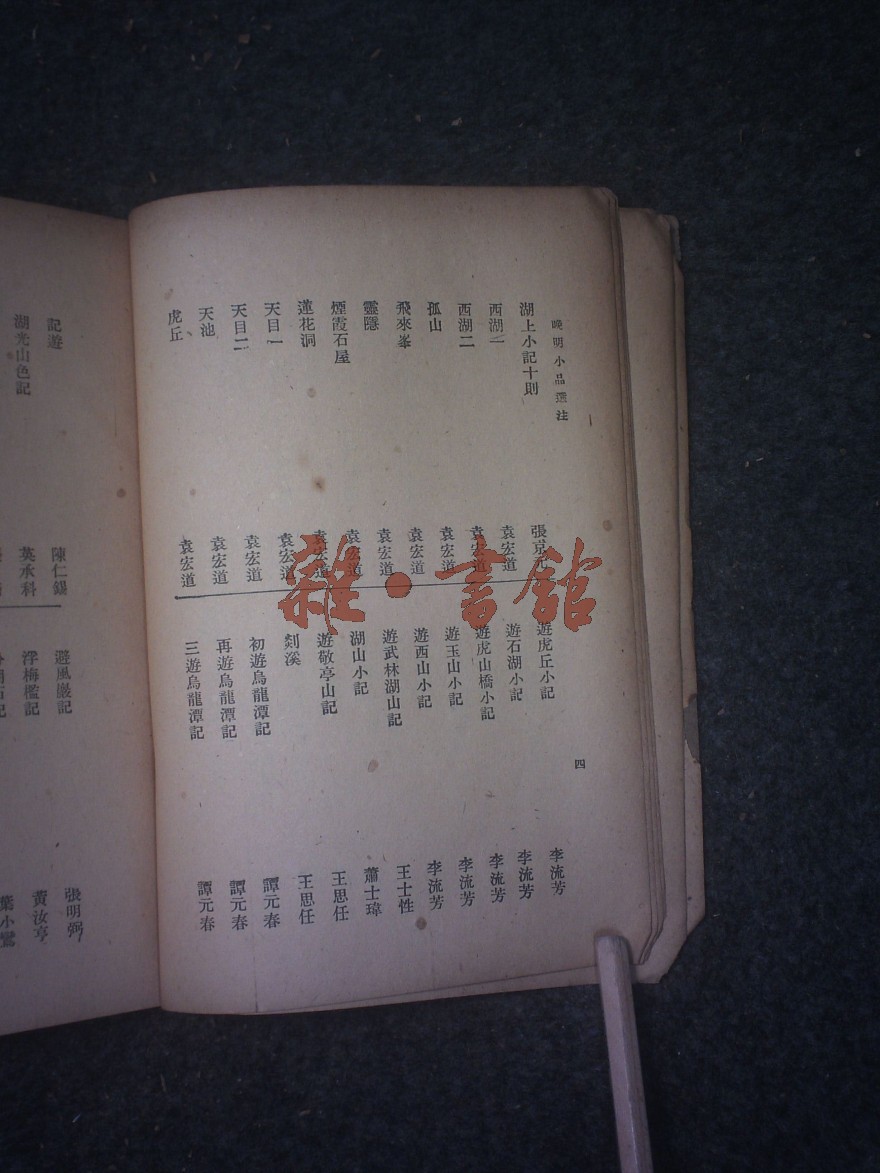 晚明小品選注
四
湖上小記十則
張京元
西湖一
袁宏道
西湖二
袁宏道
孤山
袁宏道
飛來峯
袁宏道
靈隱
袁宏道
煙霞石屋
袁宏道
蓮花洞
袁宏道
天目一
袁宏道
天目二
袁宏道
天池
袁宏道
虎丘
袁宏道
遊虎丘小記
李流芳
遊石湖小記
李流芳
遊虎山橋小記
李流芳
遊玉山小記
李流芳
遊西山小記
李流芳
遊武林湖山記
王士性
湖山小記
蕭士瑋
遊敬亭山記
王思任
剡溪
王思任
初遊烏龍潭記
譚元春
再遊烏龍潭記
譚元春
三遊烏龍潭記
譚元春
記遊
陳仁錫
湖光山色記
英承科
避風巖記
張明弼
浮梅檻記
黃汝亨
葉小鸞
雜·書館